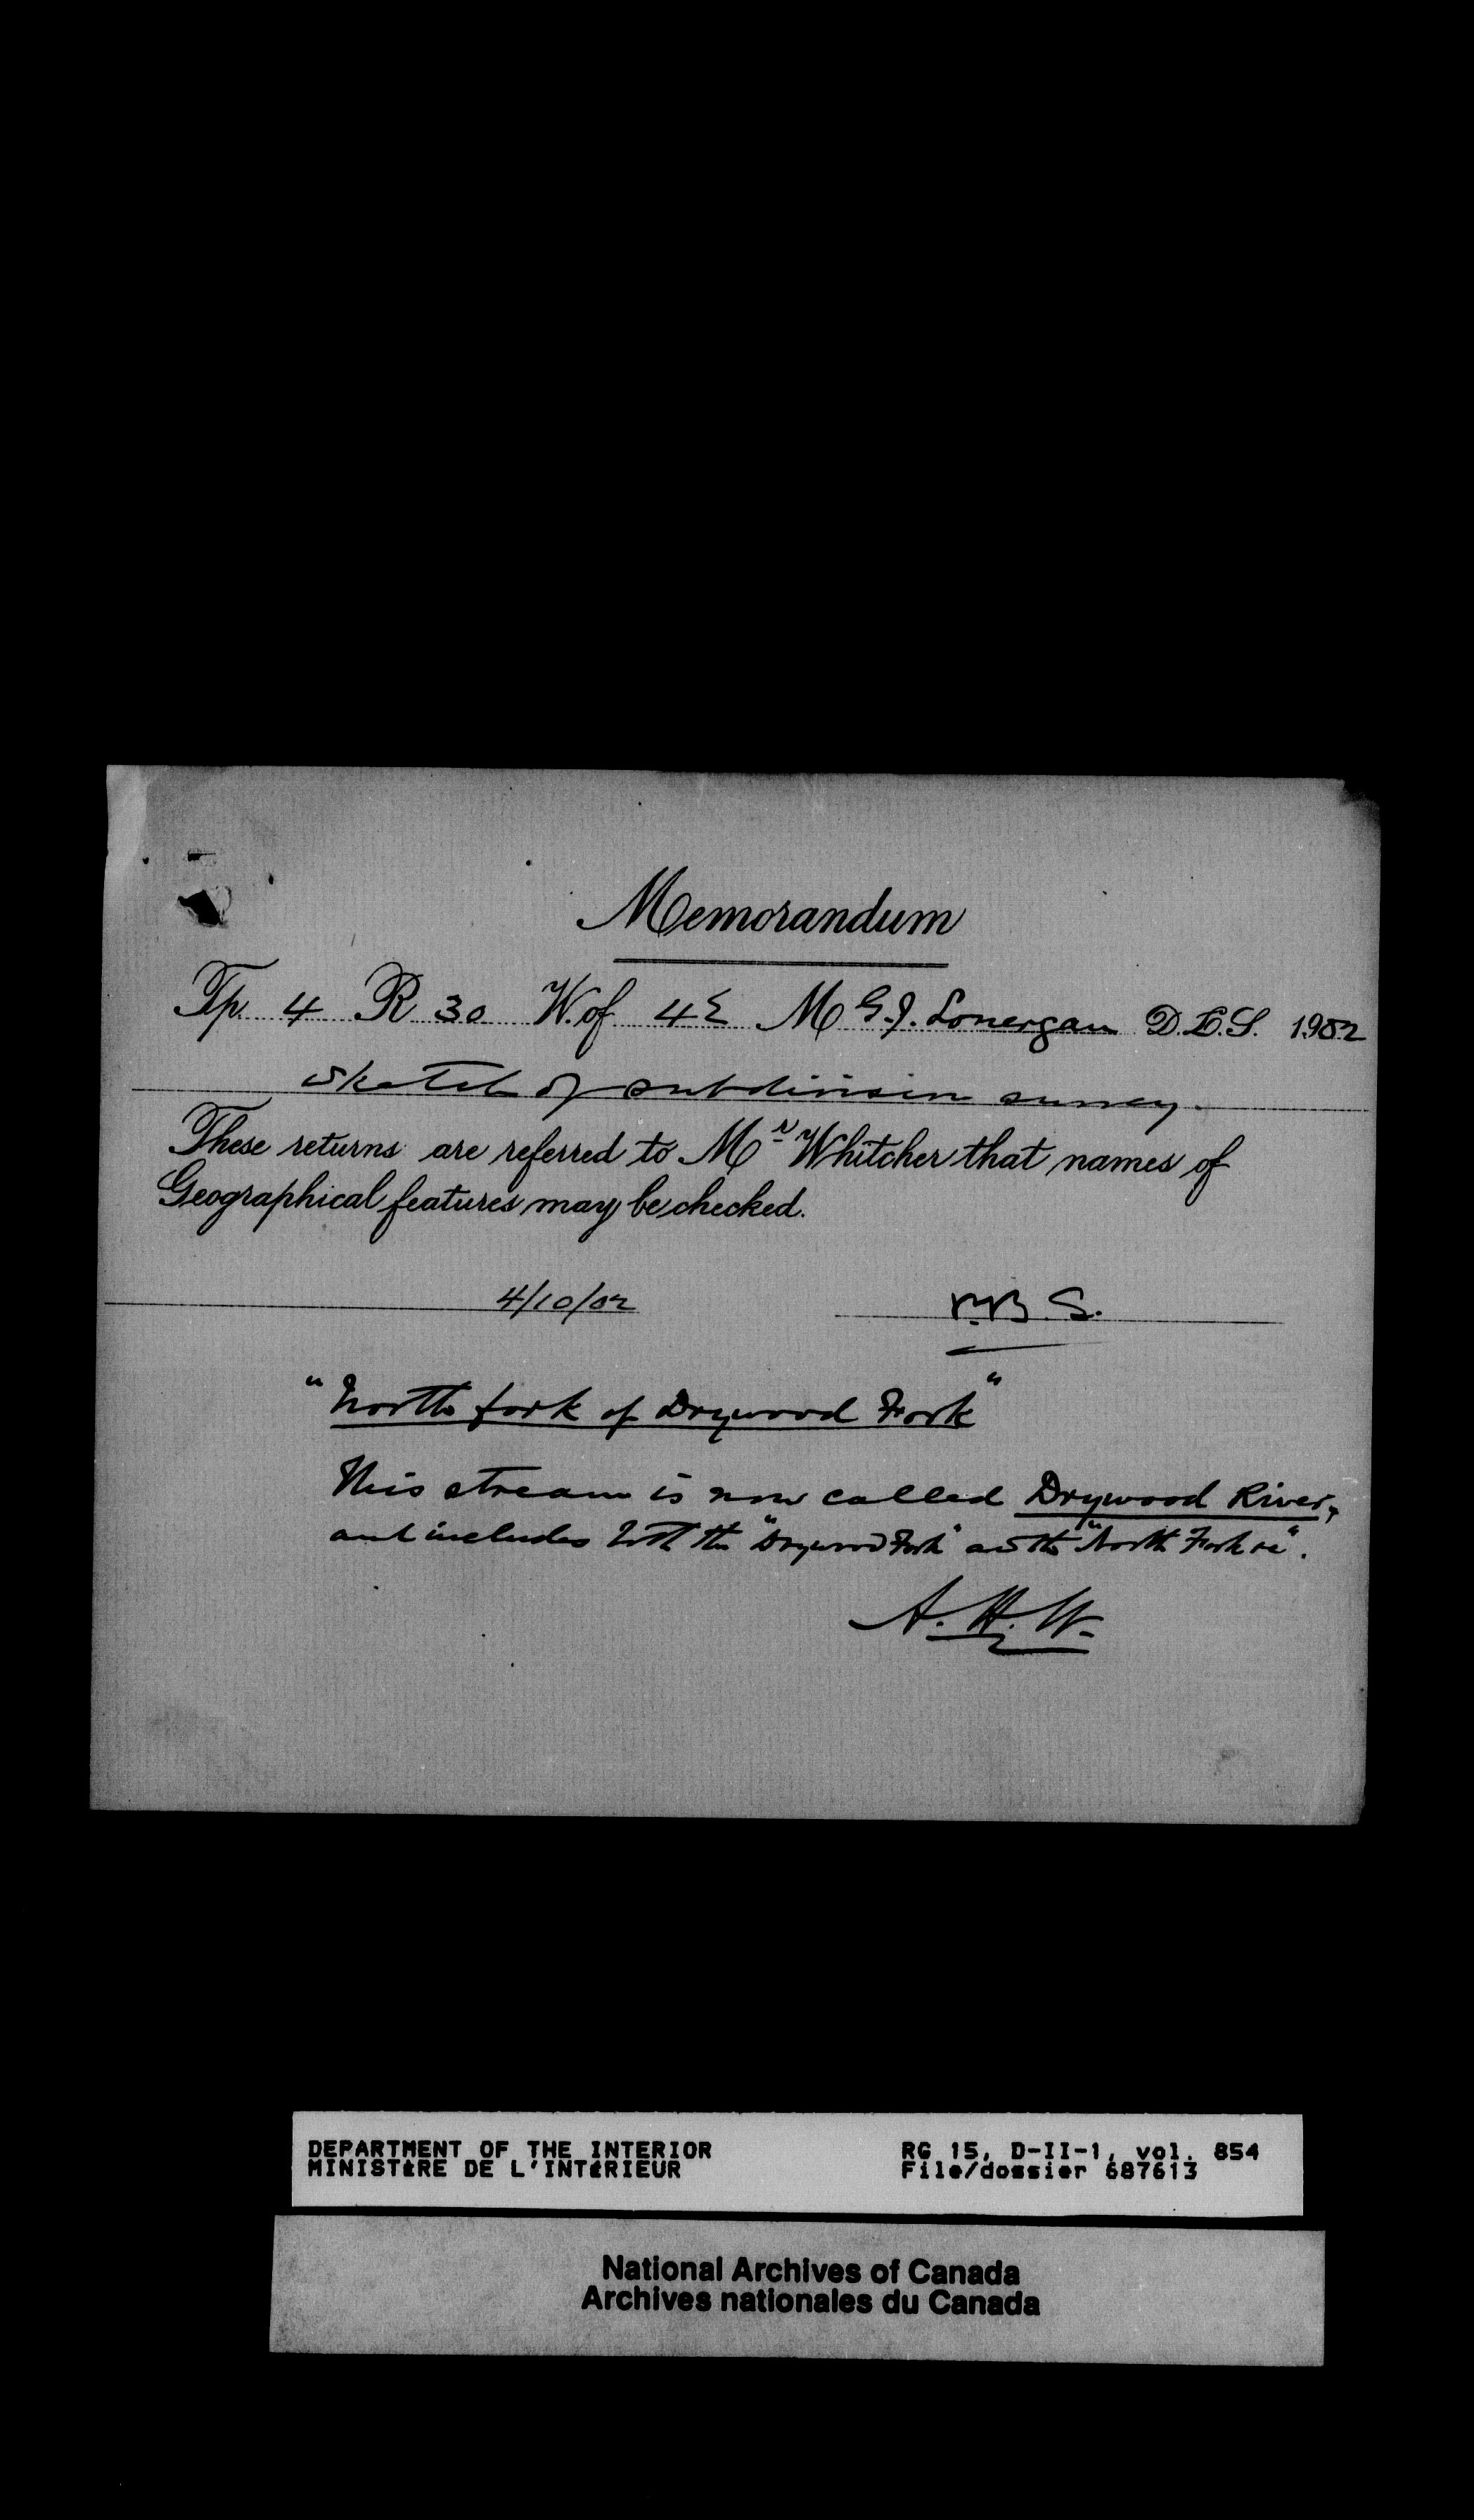 Memorandum
Tp. 4 R 30 W. of 4 M G. J. Lonergan D.L.S. 1902
Sketch of subdivision survey.
These returns are referred to Mr Whitcher that names of
Geographical features may be checked.
4/10/02 P.B.S.
"North fork of Drywood Fork"
This stream is now called Drywood River,
and includes both the "Drywood Fork" and the "North Fork
A.H.W.
DEPARTMENT OF THE INTERIOR RG 15, D-II-1, vol. 854
MINISTÈRE DE L'INTÉRIEUR File/dossier 687613
National Archives of Canada
Archives nationales du Canada